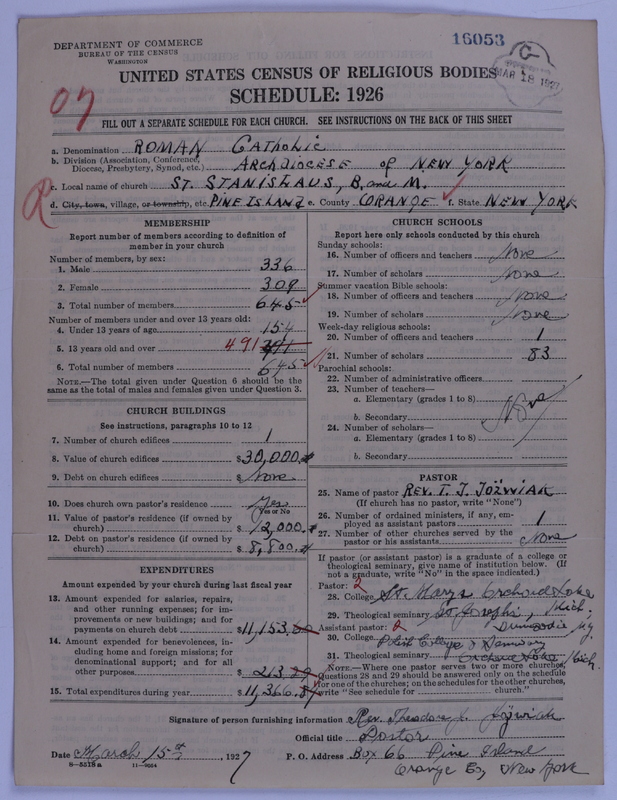 DEPARTMENT OF COMMERCE
BUREAU OF THE CENSUS
WASHINGTON
16053
C
MAR 18 1927
UNITED STATES CENSUS OF RELIGIOUS BODIES
SCHEDULE: 1926
07
FILL OUT A SEPARATE SCHEDULE FOR EACH CHURCH. SEE INSTRUCTIONS ON THE BACK OF THIS SHEET
a. Denomination ROMAN Catholic
b. Division (Association, Conference, Diocese, Presbytery, Synod, etc.) ARCHDIOCESE of NEW YORK
c. Local name of church ST. STANISLAUS, B. and M.
R
d. City, town, village, or township, etc. PINE ISLAND e. County ORANGE f. State NEW YORK
MEMBERSHIP
Report number of members according to definition of
member in your church
Number of members, by sex:
1. Male 336
2. Female 309
3. Total number of members 645
Number of members under and over 13 years old:
4. Under 13 years of age 154
5. 13 years old and over 491
6. Total number of members 645
NOTE.—The total given under Question 6 should be
same as the total of males and females given under Question 3.
CHURCH BUILDINGS
See instructions, paragraphs 10 to 12
7. Number of church edifices 1
8. Value of church edifices $30,000.
9. Debt on church edifices $ None
10. Does church own pastor's residence Yes
Yes or No
11. Value of pastor's residence (if owned by
church) $ 12,000.
12. Debt on pastor's residence (if owned by
church) $ 8,800.
EXPENDITURES
Amount expended by your church during last fiscal year
13. Amount expended for salaries, repairs,
and other running expenses; for im-
provements or new buildings; and for
payments on church debt $11,153.
14. Amount expended for benevolences, in-
cluding home and foreign missions; for
denominational support; and for all
other purposes $ 213.
15. Total expenditures during year $11,366.
CHURCH SCHOOLS
Report here only schools conducted by this church
Sunday schools:
16. Number of officers and teachers None
17. Number of scholars None
Summer vacation Bible schools:
18. Number of officers and teachers None
19. Number of scholars None
Week-day religious schools:
20. Number of officers and teachers 1
21. Number of scholars 83
Parochial schools:
22. Number of administrative officers
23. Number of teachers—
a. Elementary (grades 1 to 8)
b. Secondary None
24. Number of scholars—
a. Elementary (grades 1 to 8)
b. Secondary
PASTOR
25. Name of pastor REV. T. J. JOŹWIAK
(If church has no pastor, write "None")
26. Number of ordained ministers, if any, em-
ployed as assistant pastors 1
27. Number of other churches served by the
pastor or his assistants None
If pastor (or assistant pastor) is a graduate of a college or
theological seminary, give name of institution below. (If
not a graduate, write "No" in the space indicated.)
Pastor: 2
28. College St Marys Orchard Lake
29. Theological seminary St Josephs, Mich.
Assistant pastor: 2 Dunwoodie NY
30. College Polish College & Seminary
31. Theological seminary Orchard Lake, Mich.
NOTE.—Where one pastor serves two or more churches,
Questions 28 and 29 should be answered only on the schedule
for one of the churches; on the schedules for the other churches,
write "See schedule for church."
Signature of person furnishing information Rev. Theodore J. Jóźwiak
Official title Pastor
Date March 15th, 1927 P. O. Address Box 66 Pine Island
8—5518a 11—9554 Orange Co, New York